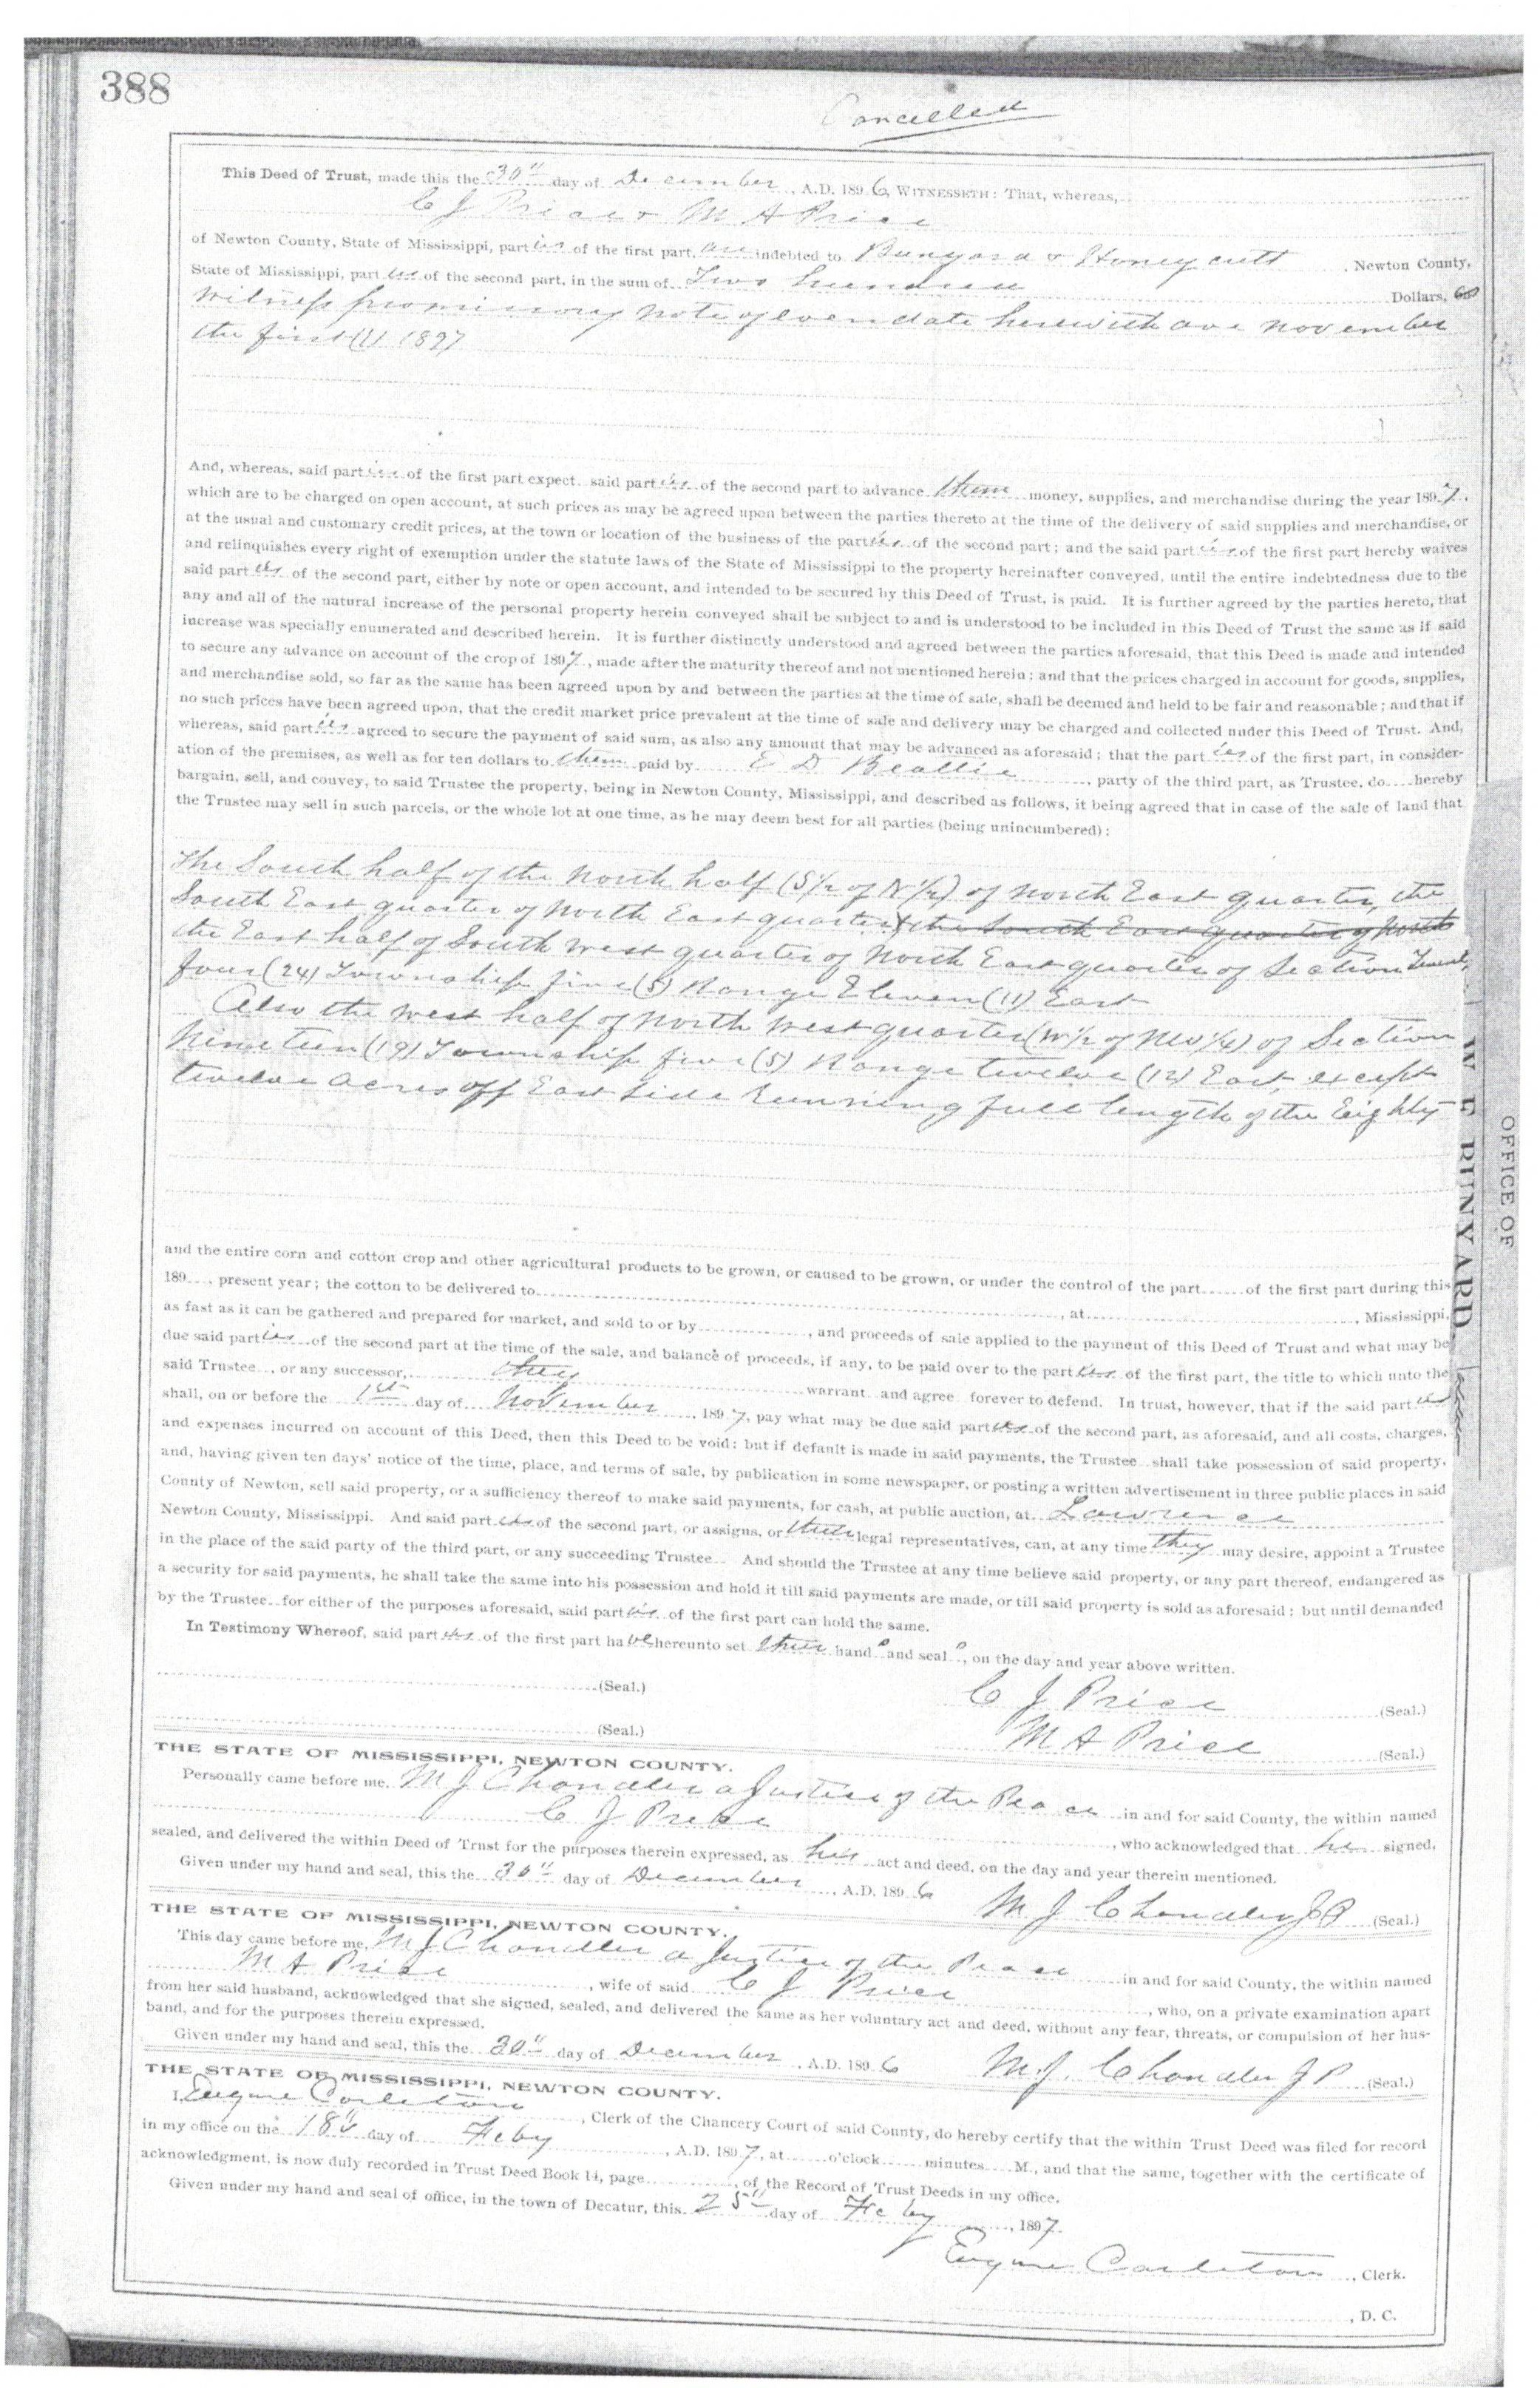 388
Cancelled
This Deed of Trust, made this the 30" day of December, A.D. 1896, WITNESSETH: That, whereas,
C J Price & M A Price
of Newton County, State of Mississippi, parties of the first part, are indebted to & Honeycutt, Newton County,
State of Mississippi, parties of the second part, in the sum of Two hundred Dollars,
Witness promissory note of even date herewith due november
the first (1) 1897
And, whereas, said parties of the first part expect said parties of the second part to advance them money, supplies, and merchandise during the year 1897,
which are to be charged on open account, at such prices as may be agreed upon between the parties thereto at the time of the delivery of said supplies and merchandise, or
at the usual and customary credit prices, at the town or location of the business of the parties of the second part; and the said parties of the first part hereby waives
and relinquishes every right of exemption under the statute laws of the State of Mississippi to the property hereinafter conveyed, until the entire indebtedness due to the
said parties of the second part, either by note or open account, and intended to be secured by this Deed of Trust, is paid. It is further agreed by the parties hereto, that
any and all of the natural increase of the personal property herein conveyed shall be subject to and is understood to be included in this Deed of Trust the same as if said
increase was specially enumerated and described herein. It is further distinctly understood and agreed between the parties aforesaid, that this Deed is made and intended
to secure any advance on account of the crop of 1897, made after the maturity thereof and not mentioned herein; and that the prices charged in account for goods, supplies,
and merchandise sold, so far as the same has been agreed upon by and between the parties at the time of sale, shall be deemed and held to be fair and reasonable; and that if
no such prices have been agreed upon, that the credit market price prevalent at the time of sale and delivery may be charged and collected under this Deed of Trust. And,
whereas, said parties agreed to secure the payment of said sum, as also any amount that may be advanced as aforesaid; that the parties of the first part, in consider-
ation of the premises, as well as for ten dollars to them paid by E D, party of the third part, as Trustee, do hereby
bargain, sell, and convey, to said Trustee the property, being in Newton County, Mississippi, and described as follows, it being agreed that in case of the sale of land that
the Trustee may sell in such parcels, or the whole lot at one time, as he may deem best for all parties (being unincumbered):
The South half of the North half (S½ of N½) of North East quarter, the
South East quarter of North East quarter, & the South East quarter of North
the East half of South west quarter of North East quarter of Section Twenty
four (24) Township five (5) Range Eleven (11) East
Also the West half of North West quarter (W½ of NW¼) of Section
Nineteen (19) Township five (5) Range twelve (12) East, except
twelve acres off East side Running full length of the Eighty
OFFICE OF
RUNYARD
and the entire corn and cotton crop and other agricultural products to be grown, or caused to be grown, or under the control of the part of the first part during this
189 , present year; the cotton to be delivered to , at , Mississippi,
as fast as it can be gathered and prepared for market, and sold to or by , and proceeds of sale applied to the payment of this Deed of Trust and what may be
due said parties of the second part at the time of the sale, and balance of proceeds, if any, to be paid over to the parties of the first part, the title to which unto the
said Trustee , or any successor, they warrant and agree forever to defend. In trust, however, that if the said parties
shall, on or before the 1st day of November, 1897, pay what may be due said parties of the second part, as aforesaid, and all costs, charges,
and expenses incurred on account of this Deed, then this Deed to be void: but if default is made in said payments, the Trustee shall take possession of said property,
and, having given ten days' notice of the time, place, and terms of sale, by publication in some newspaper, or posting a written advertisement in three public places in said
County of Newton, sell said property, or a sufficiency thereof to make said payments, for cash, at public auction, at Lawrence
Newton County, Mississippi. And said parties of the second part, or assigns, or their legal representatives, can, at any time they may desire, appoint a Trustee
in the place of the said party of the third part, or any succeeding Trustee And should the Trustee at any time believe said property, or any part thereof, endangered as
a security for said payments, he shall take the same into his possession and hold it till said payments are made, or till said property is sold as aforesaid; but until demanded
by the Trustee for either of the purposes aforesaid, said parties of the first part can hold the same.
In Testimony Whereof, said parties of the first part have hereunto set their hands and seals, on the day and year above written.
(Seal.) C J Price (Seal.)
(Seal.) M A Price (Seal.)
THE STATE OF MISSISSIPPI, NEWTON COUNTY.
Personally came before me, M J Chandler a Justice of the Peace in and for said County, the within named
C J Price, who acknowledged that he signed,
sealed, and delivered the within Deed of Trust for the purposes therein expressed, as his act and deed, on the day and year therein mentioned.
Given under my hand and seal, this the 30" day of December, A.D. 1896
M. J. Chandler JP (Seal.)
THE STATE OF MISSISSIPPI, NEWTON COUNTY.
This day came before me, M J Chandler a Justice of the Peace in and for said County, the within named
M A Price, wife of said C J Price, who, on a private examination apart
from her said husband, acknowledged that she signed, sealed, and delivered the same as her voluntary act and deed, without any fear, threats, or compulsion of her hus-
band, and for the purposes therein expressed.
Given under my hand and seal, this the 30" day of December, A.D. 1896
M. J. Chandler J P (Seal.)
THE STATE OF MISSISSIPPI, NEWTON COUNTY.
I, Eugene Carleton, Clerk of the Chancery Court of said County, do hereby certify that the within Trust Deed was filed for record
in my office on the 18" day of Feby, A.D. 1897, at o'clock minutes M., and that the same, together with the certificate of
acknowledgment, is now duly recorded in Trust Deed Book 14, page , of the Record of Trust Deeds in my office.
Given under my hand and seal of office, in the town of Decatur, this 25" day of Feby, 1897.
Eugene Carleton, Clerk.
, D. C.